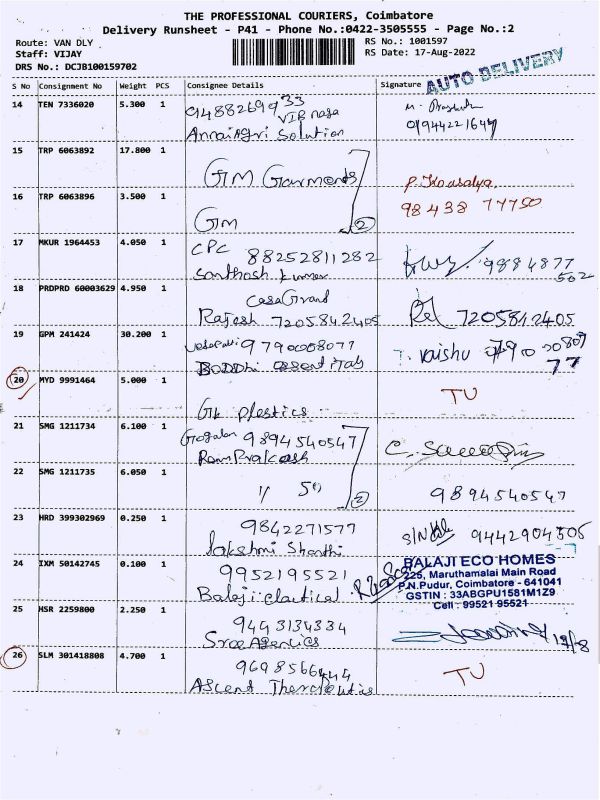 THE PROFESSIONAL COURIERS, Coimbatore
Delivery Runsheet - P41 - Phone No.:0422-3505555 - Page No.:2
Route: VAN DLY
RS No.: 1001597
Staff: VIJAY
RS Date: 17-Aug-2022
DRS No.: DCJB100159702
AUTO DELIVERY
S No Consignment No Weight PCS Consignee Details Signature
14 TEN 7336020 5.300 1
9488269933
Annai Agri Solution
15 TRP 6063892 17.800 1
GM Garments
P. Kousalya
16 TRP 6063896 3.500 1
98438 77750
GM
2
17 MKUR 1964453 4.050 1
CPC 88252811282
Santhosh kumar
9884877
502
18 PRDPRD 60003629 4.950 1
CasaGrand
Rajesh 7205842405
7205842405
19 GPM 241424 30.200 1
T. Vaishu
77
20 MYD 9991464 5.000 1
TU
GK Plastics
21 SMG 1211734 6.100 1
9894540547
RamPrakash
22 SMG 1211735 6.050 1
2
9894540547
23 HRD 399302969 0.250 1
9842271577
9442904505
Lakshmi Shanthi
24 IXM 50142745 0.100 1
9952195521
Balaji
BALAJI ECO HOMES
225, Maruthamalai Main Road
P.N.Pudur, Coimbatore - 641041
GSTIN : 33ABGPU1581M1Z9
Cell : 99521 95521
25 HSR 2259800 2.250 1
9443134334
Sree Agencies
26 SLM 301418808 4.700 1
9698566444
TU
Ascent Therapeutics